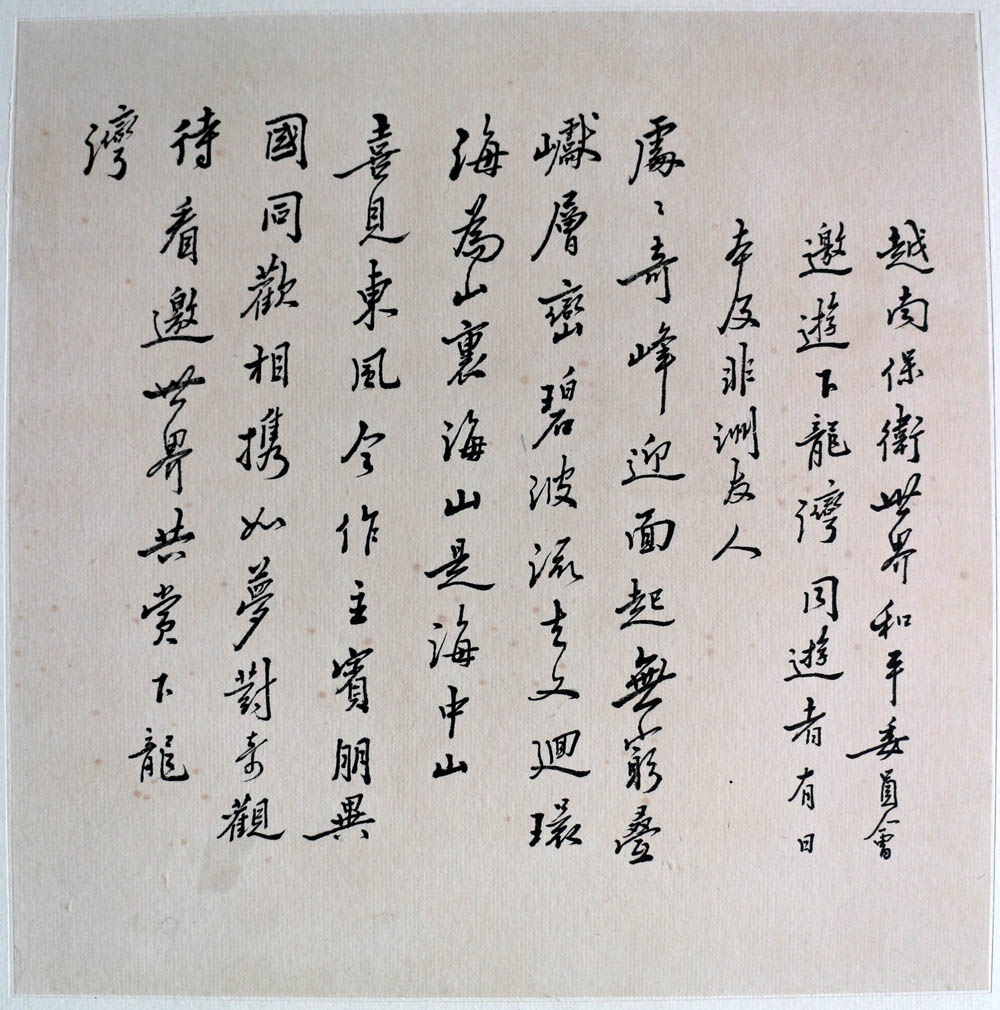 越南保衛世界和平委員會
邀遊下龍灣同遊者有日
本及非洲友人
處々奇峰迎面起無窮疊
巘層巒碧波流去又迴環
海為山裏海山是海中山
喜見東風今作主賓朋異
國同歡相携如夢對奇觀
待看邀世界共賞下龍
灣